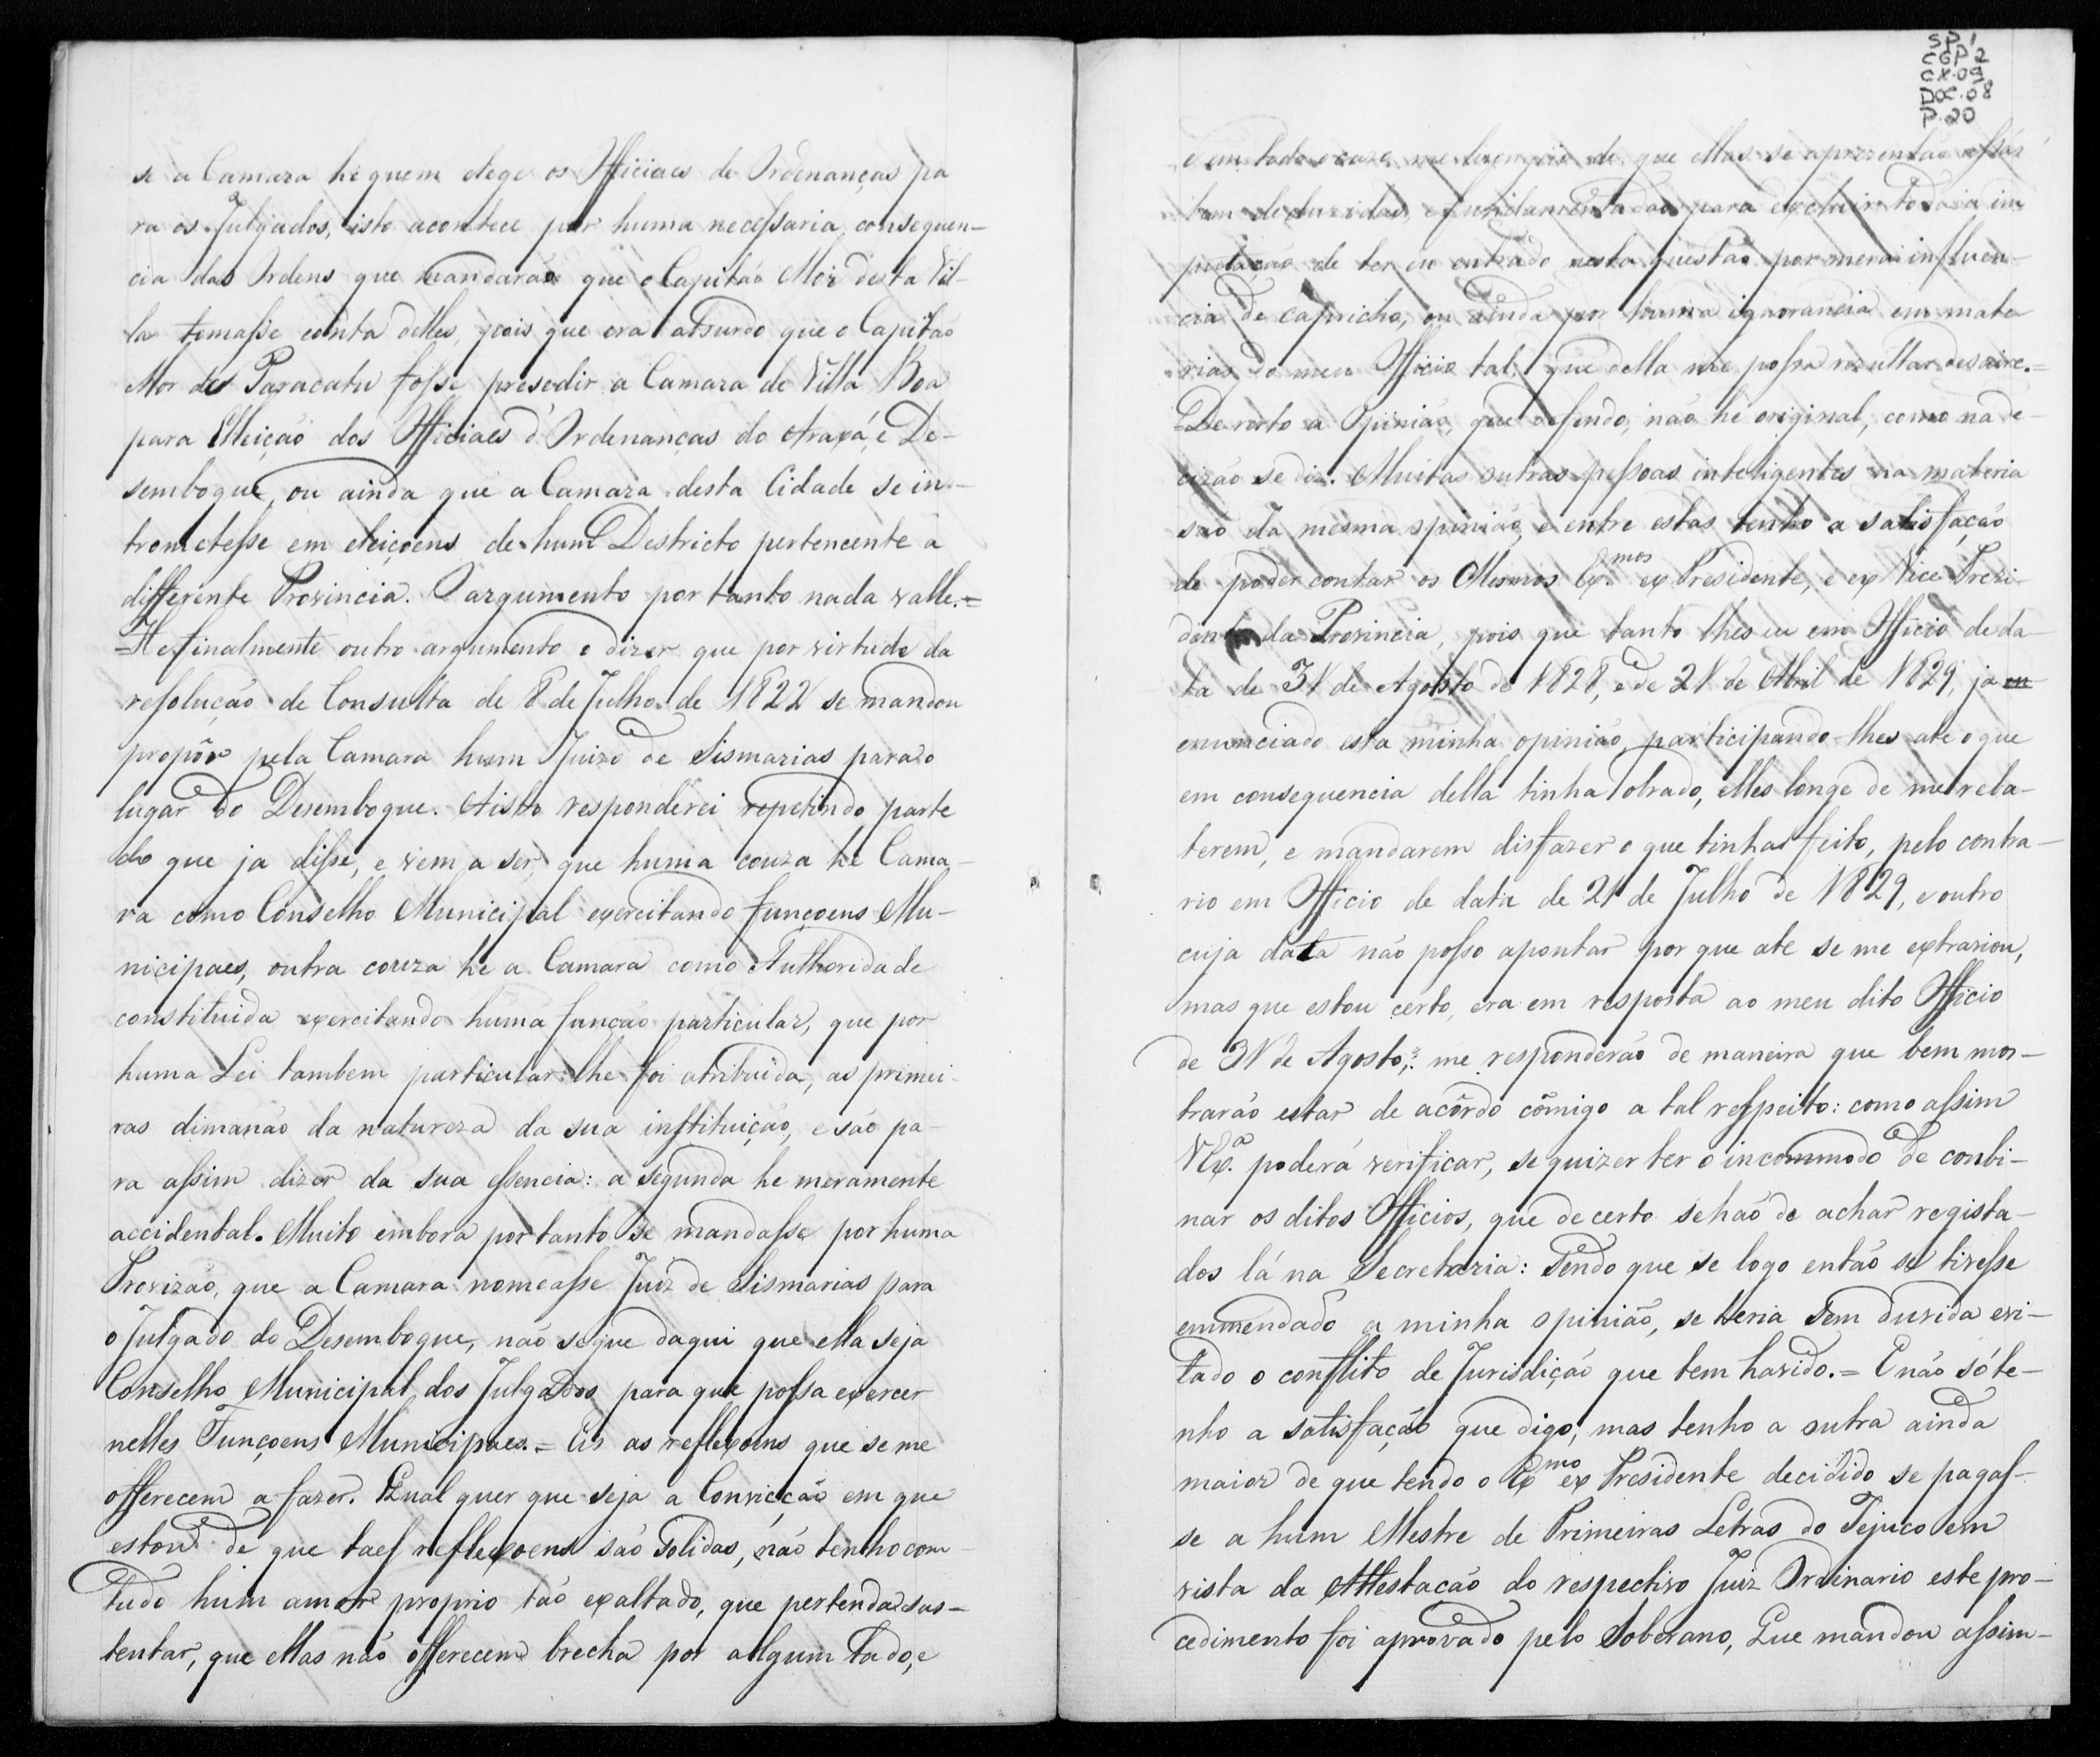 se a Camara he quem elege os Officiaes de Ordenanças pa
ra os Julgados, isto acontece por huma necessaria consequen-
cia das Ordens que mandarão que o Capitão Mór desta Vil-
la tomasse conta delles, pois que era absurdo que o Capitão
Mor de Paracatu fosse presedir a Camara de Villa Boa
para Elleição dos Officiaes d'Ordenanças do Araxá, e De-
semboque, ou ainda que a Camara desta Cidade se in-
trometesse em eleiçoens de hum Destricto pertencente a
differente Provincia. O argumento por tanto nada valle.=
=He finalmente outro argumento o dizer que por virtude da
resolução de Consulta de 8 de Julho de 1822 se mandou
propôr pela Camara hum Juizo de Sismarias para o
lugar do Desemboque. A isto responderei repetindo parte
do que ja disse, e vem a ser, que huma couza he Cama-
ra como Conselho Municipal exercitando funçoens Mu-
nicipaes, outra couza he a Camara como Authoridade
constituida exercitando huma função particular, que por
huma Lei tambem particular lhe foi atribuida, as primei-
ras dimanão da natureza da sua instituição, e são pa-
ra assim dizer da sua essencia: a segunda he meramente
accidental. Muito embora por tanto se mandasse por huma
Provizão, que a Camara nomeasse Juiz de Sismarias para
o Julgado do Desemboque, não segue daqui que ella seja
Conselho Municipal dos Julgados para que possa exercer
nelles Funçoens Municipaes.= Eis as reflexoens que se me
offerecem a fazer. Qual quer que seja a Convicção em que
estou de que taes reflexoens são solidas, não tenho com
tudo hum amor proprio tão exaltado, que pertenda sus-
tentar, que ellas não offerecem brecha por algum lado, e
SP1
CGP2
CX.09
DOC.08
P.20
e em todo o caso me de que ellas se aprezentão assás
bem deduzidas, e fundamentadas para excluir toda a im
putação de ter eu entrado nesta questão por mera influen-
cia de capricho, ou ainda por huma ignorancia em mate
rias do meu Officio tal, que della me possa rezultar desaire.=
=De resto a Opinião, que defendo, não he original, como na de-
cizão se diz. Muitas outras pessoas inteligentes na materia
são da mesma opinião, e entre estas tenho a satisfação
de poder contar os Mesmos Ex.mos ex Presidente, e ex Vice Prezi-
dente da Provincia, pois que tanto lhes eu em Officio de da-
ta de 31 de Agosto de 1828, e de 21 de Abril de 1829, ja en
enunciado esta minha opinião, participando-lhes ate o que
em consequencia della tinha obrado, elles longe de me reba-
terem, e mandarem disfazer o que tinha feito, pelo contra-
rio em Officio de data de 21 de Julho de 1829, e outro
cuja data não posso apontar por que ate se me extraviou,
mas que estou certo, era em resposta ao meu dito Officio
de 31 de Agosto, me responderão de maneira que bem mos-
trarão estar de acôrdo cõmigo a tal respeito: como assim
V Ex.a poderá verificar, se quizer ter o incommodo de conbi-
nar os ditos Officios, que de certo se hão de achar regista-
dos lá na Secretaria: Sendo que se logo então se tivesse
emmendado a minha opinião, se teria sem duvida evi-
tado o conflito de Jurisdição que tem havido.= E não só te-
nho a satisfação que digo, mas tenho a outra ainda
maior de que tendo o Ex.mo ex Presidente decidido se pagas-
se a hum Mestre de Primeiras Letras do Tejuco em
vista da Attestacão do respectivo Juiz Ordinario este pro-
cedimento foi aprovado pelo Soberano, Que mandou assim-